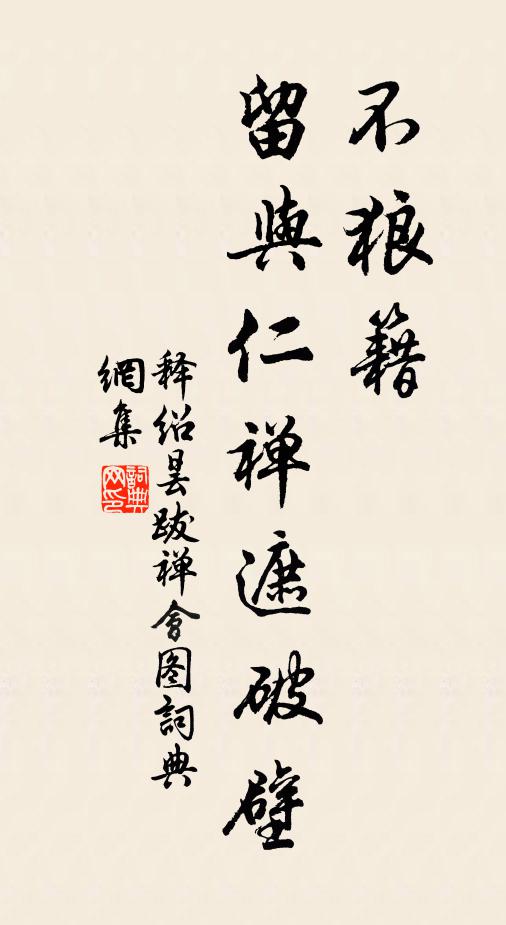 不狼籍
留與仁禅遮破壁
释绍昙跋禅會图詞典
網集
詞典
网印